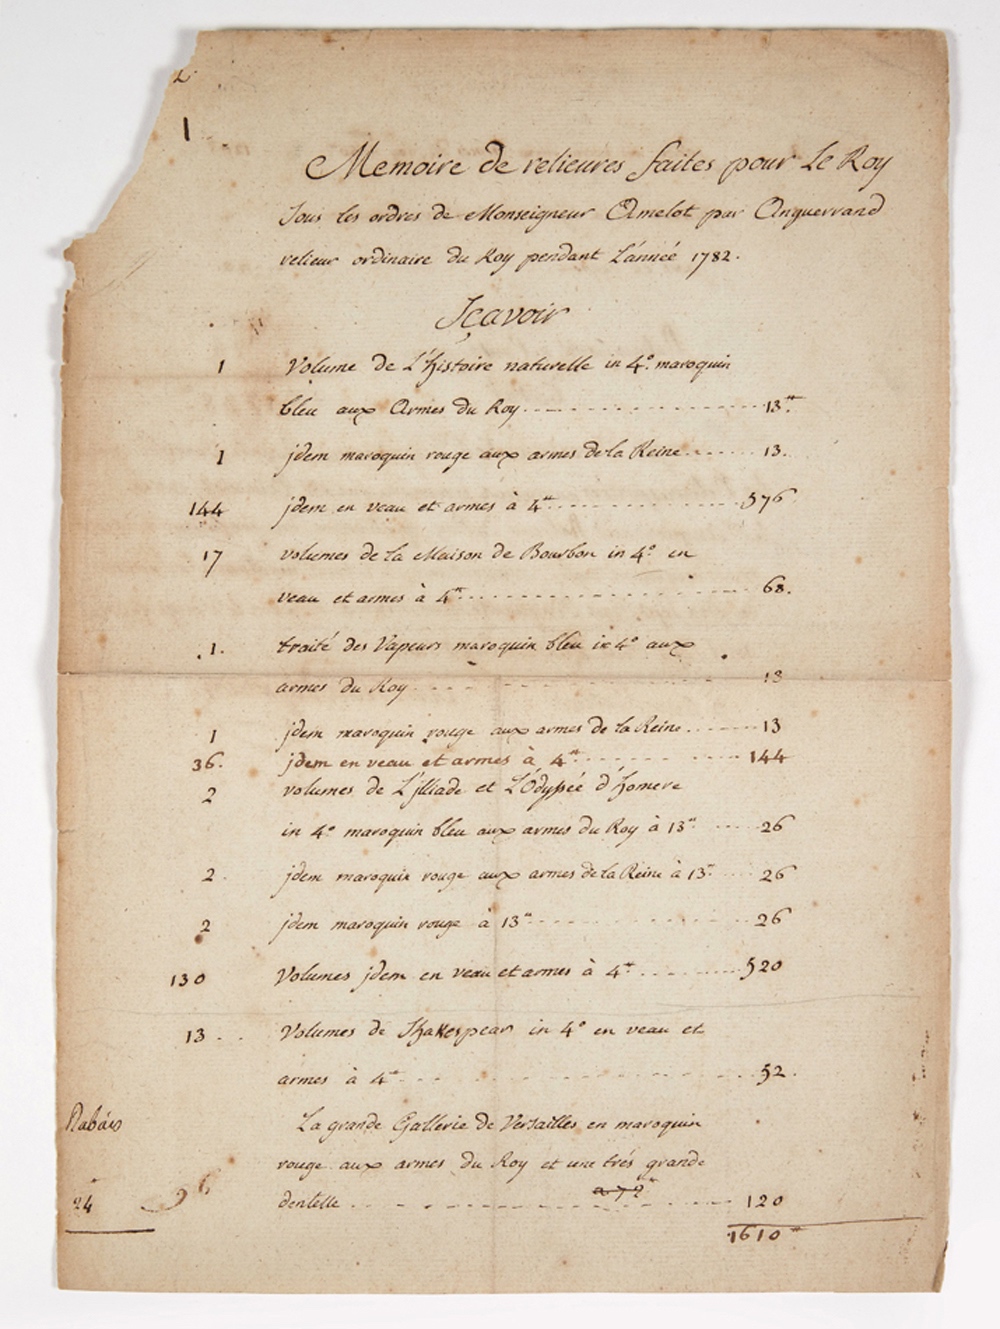 1
Memoire de relieures faites pour Le Roy
Sous les ordres de Monseigneur Amelot par Anguerrand
relieur ordinaire du Roy pendant L'année 1782.
Sçavoir
1 Volume de L'histoire naturelle in 4º. maroquin
bleu aux Armes du Roy 13.#
1 jdem maroquin rouge aux armes de la Reine 13.
144 jdem en veau et armes à 4# 576
17 volumes de la Maison de Bourbon in 4º en
veau et armes à 4# 68.
1. traité des Vapeurs maroquin bleu in 4º aux
armes du Roy 13
1 jdem maroquin rouge aux armes de la Reine 13
36. jdem en veau et armes à 4# 144
2 volumes de L'jlliade et L'Odyssée d'homere
in 4º maroquin bleu aux armes du Roy à 13# 26
2. jdem maroquin rouge aux armes de la Reine à 13# 26
2 jdem maroquin rouge à 13# 26
130 Volumes jdem en veau et armes à 4# 520
13 Volumes de Shakespear in 4º en veau et
armes à 4# 52.
Rabais La grande Gallerie de Versailles en maroquin
rouge aux armes du Roy et une trés grande
24 96 dentelle a 72# 120
1610#